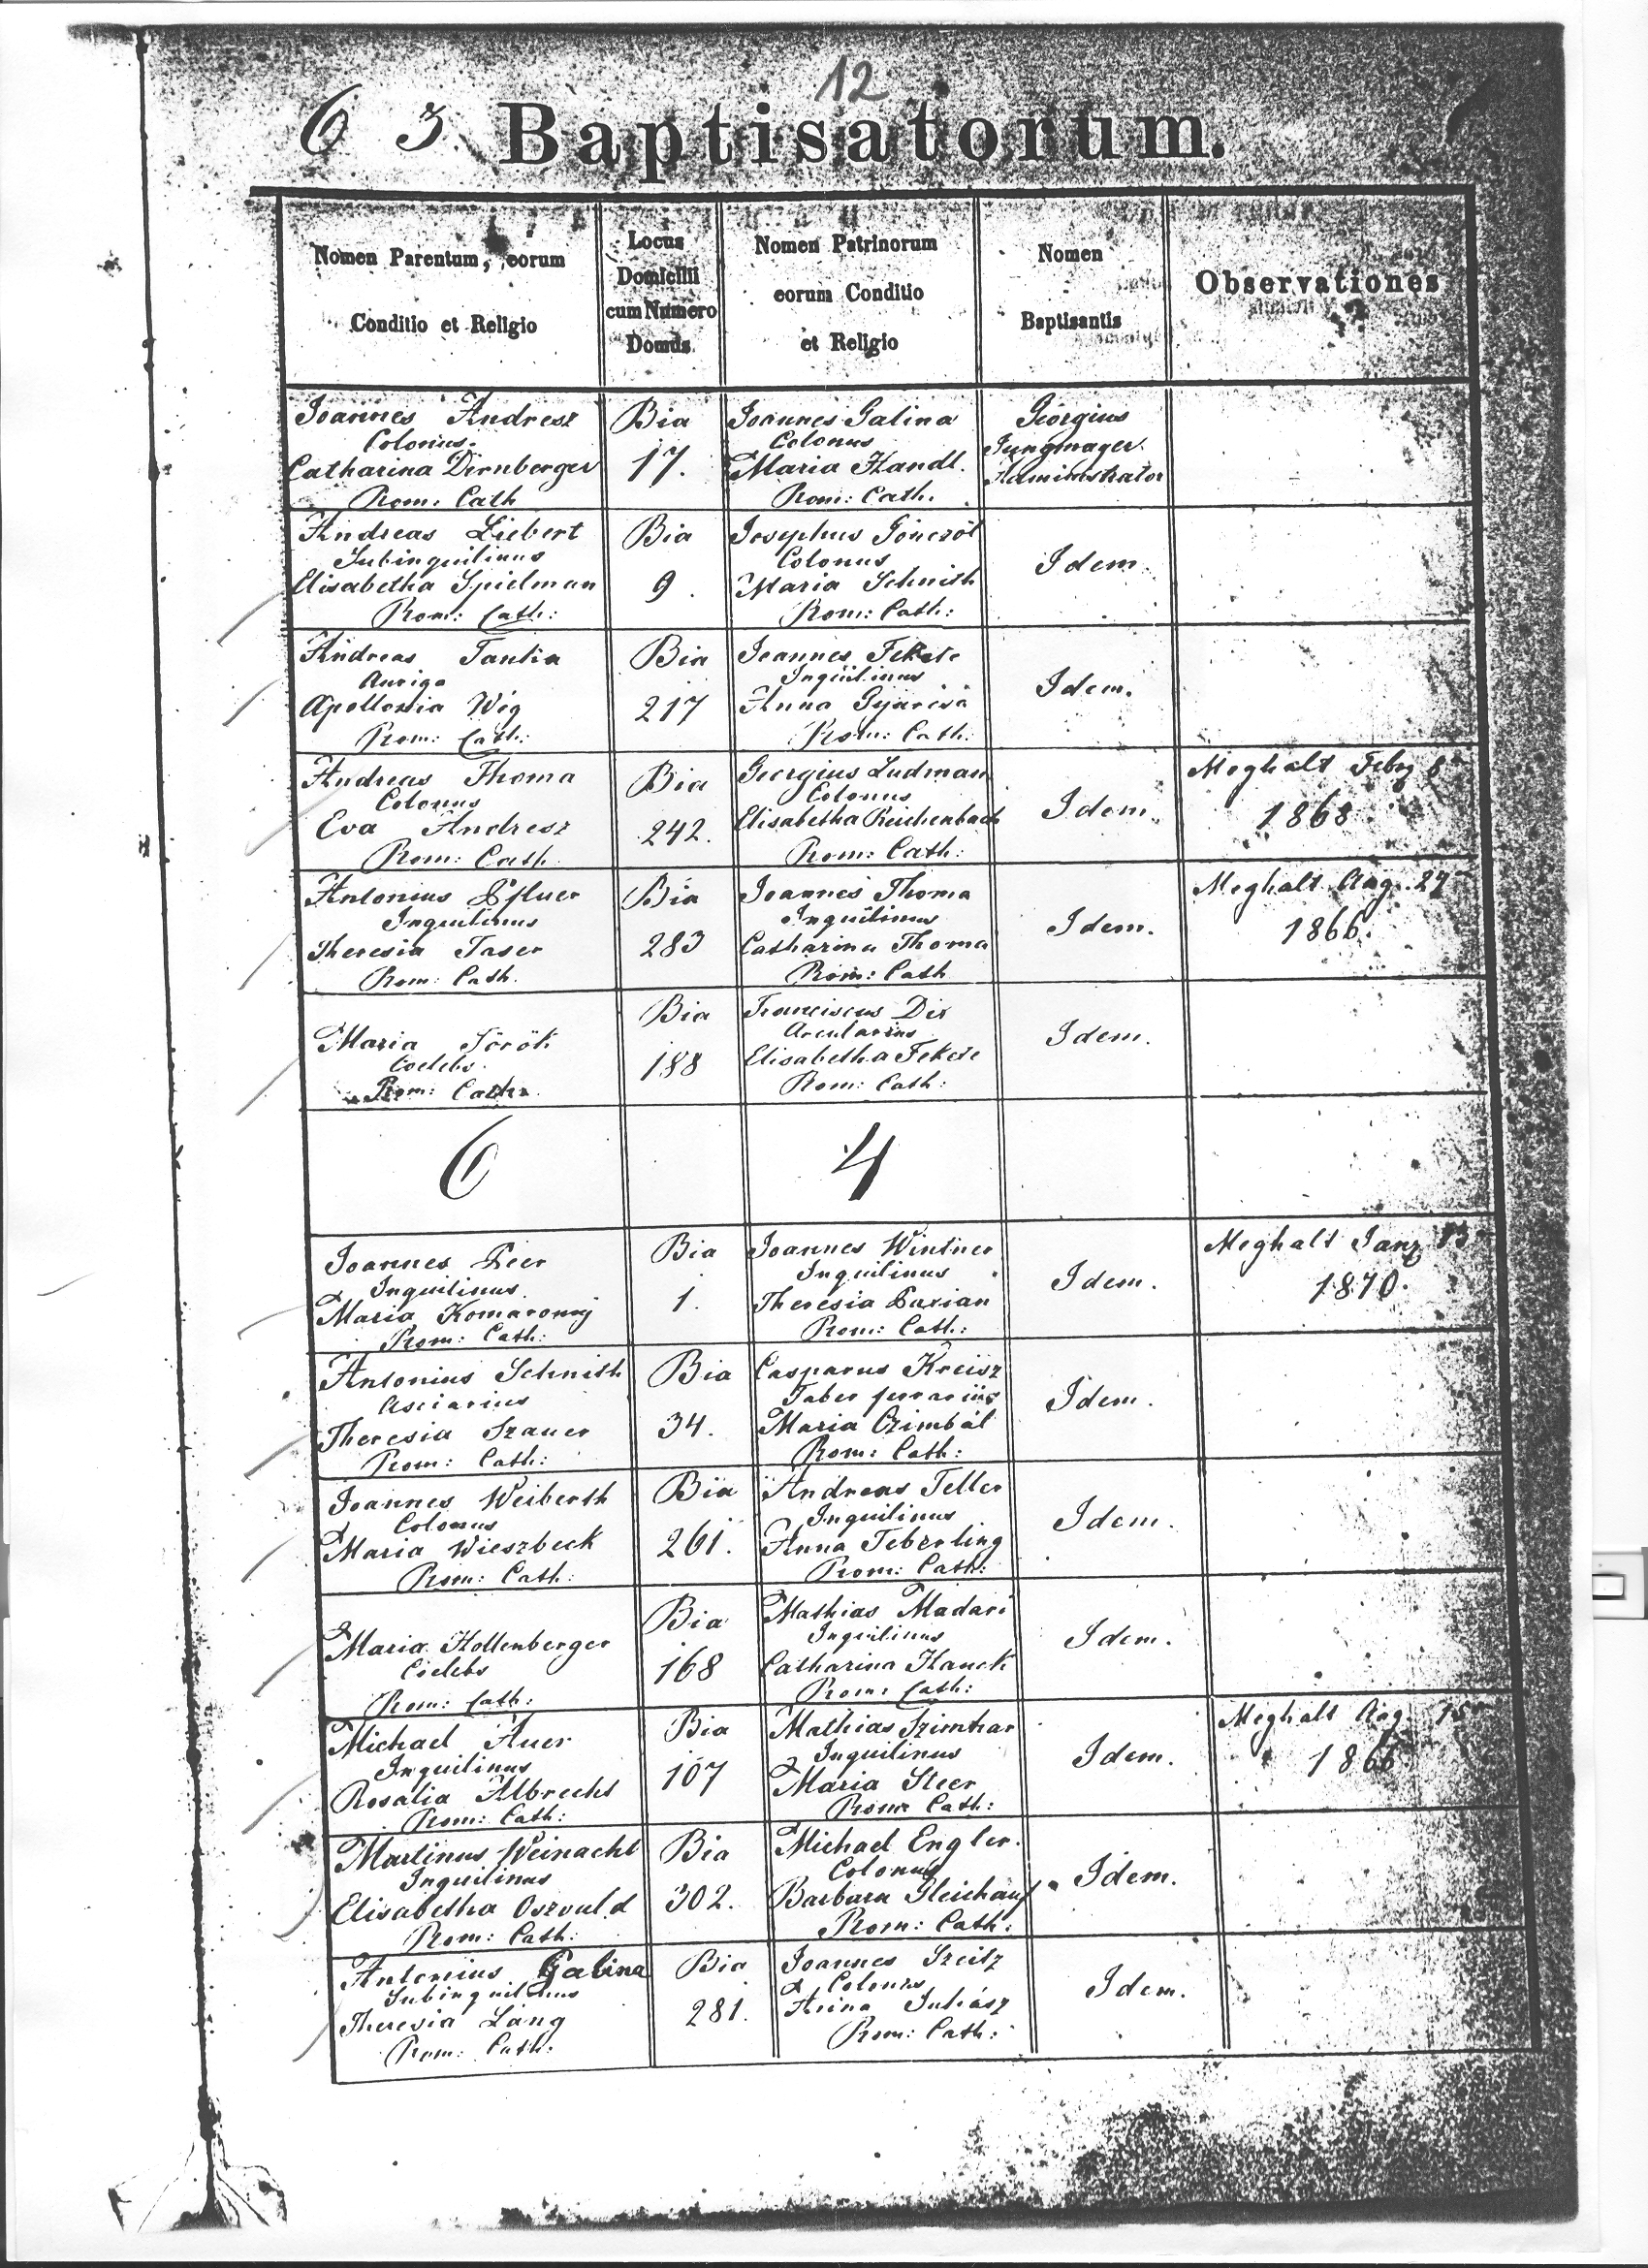 12
6 3 Baptisatorum.
Nomen Parentum, eorum
Conditio et Religio
Locus
Domicilii
cum Numero
Domus
Nomen Patrinorum
eorum Conditio
et Religio
Nomen
Baptisantis
Observationes
Joannes Andresz
Colonus.
Catharina Dirnberger
Rom: Cath
Bia
17.
Joannes Galina
Colonus
Maria Handl.
Rom: Cath.
Georgius
Jungmayer
Administrator
Andreas Liebert
Subinquilinus
Elisabetha Spielman
Rom: Cath:
Bia
9.
Josephus Gönczöl
Colonus
Maria Schnith
Rom: Cath:
Idem.
Andreas
Auriga
Apollonia Wig
Rom: Cath:
Bia
217
Joannes Fekete
Inquilinus
Anna
Rom: Cath:
Idem.
Andreas Thoma
Colonus
Eva Andresz
Rom: Cath.
Bia
242.
Georgius Ludman
Colonus
Elisabetha Reichenbach
Rom: Cath:
Idem.
Meghalt Febr 8
1868
Antonius
Inquilinus
Theresia Taser
Rom: Cath.
Bia
283
Joannes Thoma
Inquilinus
Catharina Thoma
Rom: Cath
Idem.
Meghalt Aug. 27
1866.
Maria Török
Coelebs.
Rom: Cath.
Bia
188
Franciscus Dix
Arcularius
Elisabetha Fekete
Rom: Cath:
Idem.
6 4
Joannes Peer
Inquilinus
Maria Komaromij
Rom: Cath:
Bia
1.
Joannes Wintner
Inquilinus
Theresia Paxian
Rom: Cath:
Idem.
Meghalt Janr 13
1870.
Antonius Schnith
Asciarius
Theresia Szauer
Rom: Cath:
Bia
34.
Casparus Kreisz
Faber ferrarius
Maria Czimbál
Rom: Cath:
Idem.
Joannes Weiberth
Colonus
Maria Wieszbeck
Rom: Cath:
Bia
261.
Andreas Teller
Inquilinus
Anna Teberling
Rom: Cath:
Idem.
Maria Hollenberger
Coelebs
Rom: Cath:
Bia
168
Mathias Madari
Inquilinus
Catharina Hauck
Rom: Cath:
Idem.
Michael Auer
Inquilinus
Rosalia Albrecht
Rom: Cath:
Bia
107
Mathias Szirnhar
Inquilinus
Maria Steer
Rom: Cath:
Idem.
Meghalt Aug. 15
1866
Martinus Weinacht
Inquilinus
Elisabetha Oszvald
Rom: Cath:
Bia
302.
Michael Engler.
Colonus
Barbara Gleichauf
Rom: Cath:
Idem.
Antonius Galina
Subinquilinus
Theresia Láng
Rom: Cath.
Bia
281.
Joannes Szeitz
Colonus
Anna Juhász
Rom: Cath:
Idem.